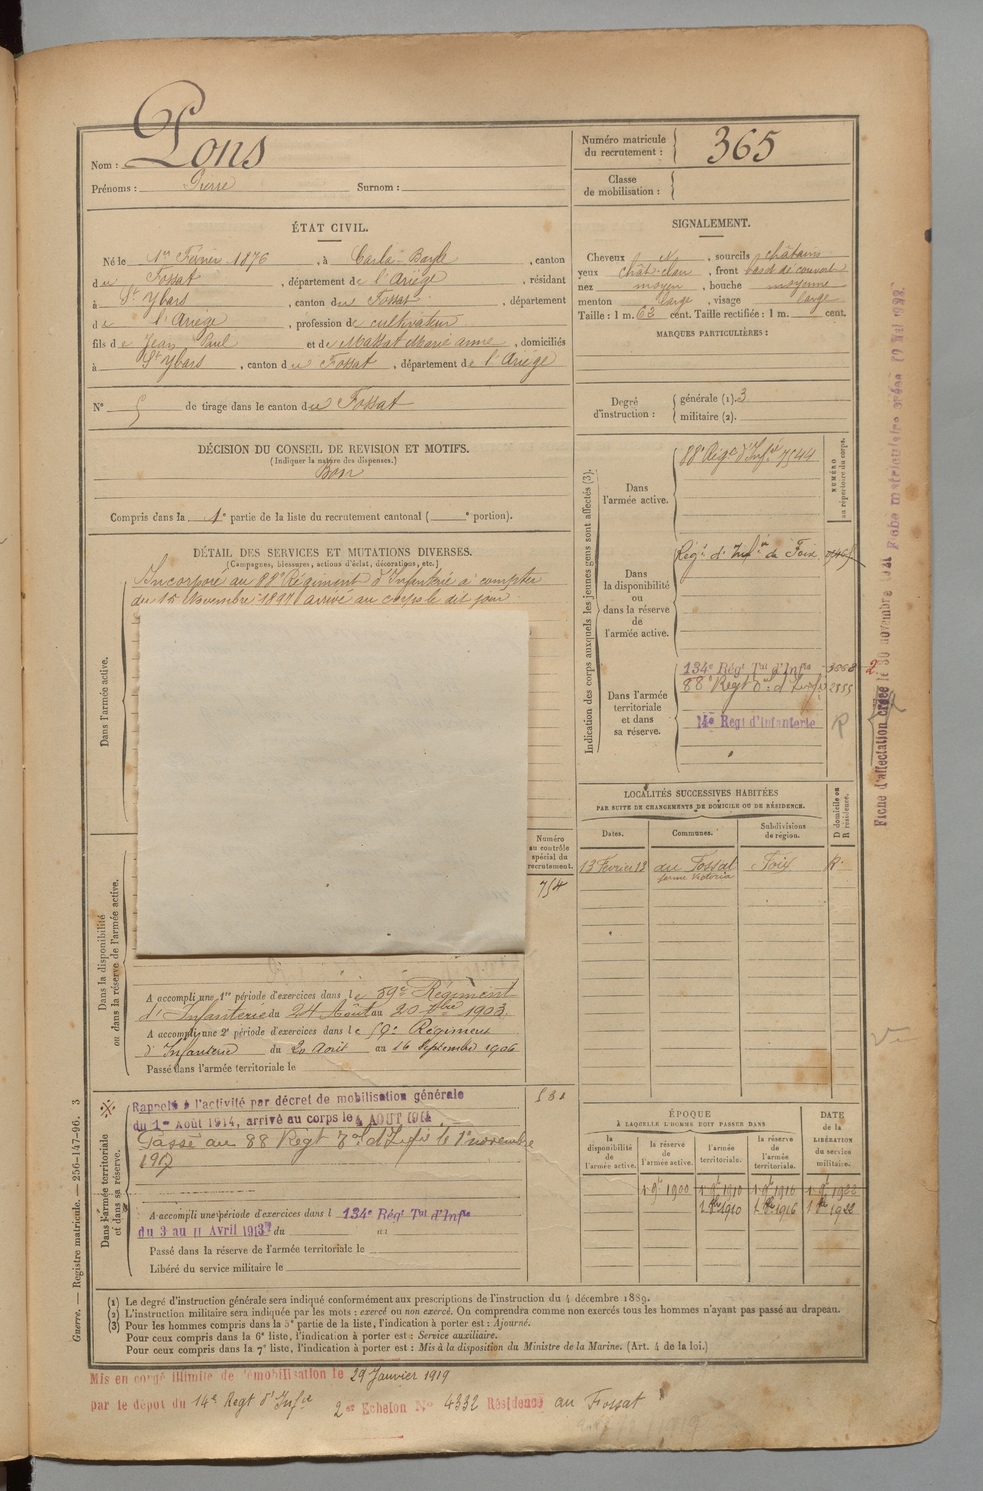 Nom : Pons
Prénoms : Pierre Surnom :
Numéro matricule du recrutement : 365
Classe de mobilisation :
ÉTAT CIVIL.
Né le 1er Février 1876, à Carla-Bayle, canton
du Fossat, département de l'Ariège, résidant
à St Ybars, canton du Fossat, département
de l'Ariège, profession de cultivateur
fils de Jean Paul et de Massat Marie anne, domiciliés
à St Ybars, canton du Fossat, département de l'Ariège
N° 5 de tirage dans le canton du Fossat
DÉCISION DU CONSEIL DE REVISION ET MOTIFS.
(Indiquer la nature des dispenses.)
Bon
Compris dans la 1e partie de la liste du recrutement cantonal ( e portion).
SIGNALEMENT.
Cheveux N, sourcils châtains
yeux chât-clair, front bas et découvert
nez moyen, bouche moyenne
menton large, visage large
Taille : 1 m. 63 cent. Taille rectifiée : 1 m. cent.
MARQUES PARTICULIÈRES :
Degré d'instruction :
générale (1). 3
militaire (2).
DÉTAIL DES SERVICES ET MUTATIONS DIVERSES.
(Campagnes, blessures, actions d'éclat, décorations, etc.)
Dans l'armée active.
Incorporé au 88e Régiment d'Infanterie à compter
du 15 Novembre 1897 arrivé au corps le dit jour
Dans la disponibilité ou dans la réserve de l'armée active.
Numéro au contrôle spécial du recrutement.
754
A accompli une 1re période d'exercices dans le 59e Régiment
d'Infanterie du 24 Août au 20 7bre 1903.
A accompli une 2e période d'exercices dans le 59e Régiment
d'Infanterie du 20 Août au 16 Septembre 1906
Passé dans l'armée territoriale le
Dans l'armée territoriale et dans sa réserve.
Rappelé à l'activité par décret de mobilisation générale
du 1er Août 1914, arrivé au corps le 4 AOUT 1914
Passé au 88 Régt Tal d'Infie le 1er novembre
1917
A accompli une période d'exercices dans l 134e Régt Tal d'Infie
du 3 au 11 Avril 1913 du au
Passé dans la réserve de l'armée territoriale le
Libéré du service militaire le
Indication des corps auxquels les jeunes gens sont affectés (3).
NUMÉRO au répertoire du corps.
Dans l'armée active.
88e Régt d'Infie 7544
Dans la disponibilité ou dans la réserve de l'armée active.
Régt d'Infie de Foix
Dans l'armée territoriale et dans sa réserve.
134e Régt Tal d'Infie
88e Régt Tal d'Infie 2555
14e Régt d'Infanterie R
LOCALITÉS SUCCESSIVES HABITÉES
PAR SUITE DE CHANGEMENTS DE DOMICILE OU DE RÉSIDENCE.
Dates. Communes. Subdivisions de région. D domicile ou R résidence.
13 Février 13 au Fossat Foix R.
ferme Victoria
ÉPOQUE
À LAQUELLE L'HOMME DOIT PASSER DANS
la disponibilité de l'armée active.
la réserve de l'armée active.
l'armée territoriale.
la réserve de l'armée territoriale.
DATE de la LIBÉRATION du service militaire.
1er 9bre 1900 1er 9bre 1910 1er 9bre 1916 1er 9bre 1922
1910 1916 1922
(1) Le degré d'instruction générale sera indiqué conformément aux prescriptions de l'instruction du 4 décembre 1889.
(2) L'instruction militaire sera indiquée par les mots : exercé ou non exercé. On comprendra comme non exercés tous les hommes n'ayant pas passé au drapeau.
(3) Pour les hommes compris dans la 5e partie de la liste, l'indication à porter est : Ajourné.
Pour ceux compris dans la 6e liste, l'indication à porter est : Service auxiliaire.
Pour ceux compris dans la 7e liste, l'indication à porter est : Mis à la disposition du Ministre de la Marine. (Art. 4 de la loi.)
Mis en congé illimité de démobilisation le 29 Janvier 1919
par le dépôt du 14e Régt d'Infie 2er Echelon N° 4332 Résidence au Fossat
Guerre. — Registre matricule. — 256-147-96. 3
Fiche d'affectation créée le 30 novembre 1921
Fiche matriculaire créée